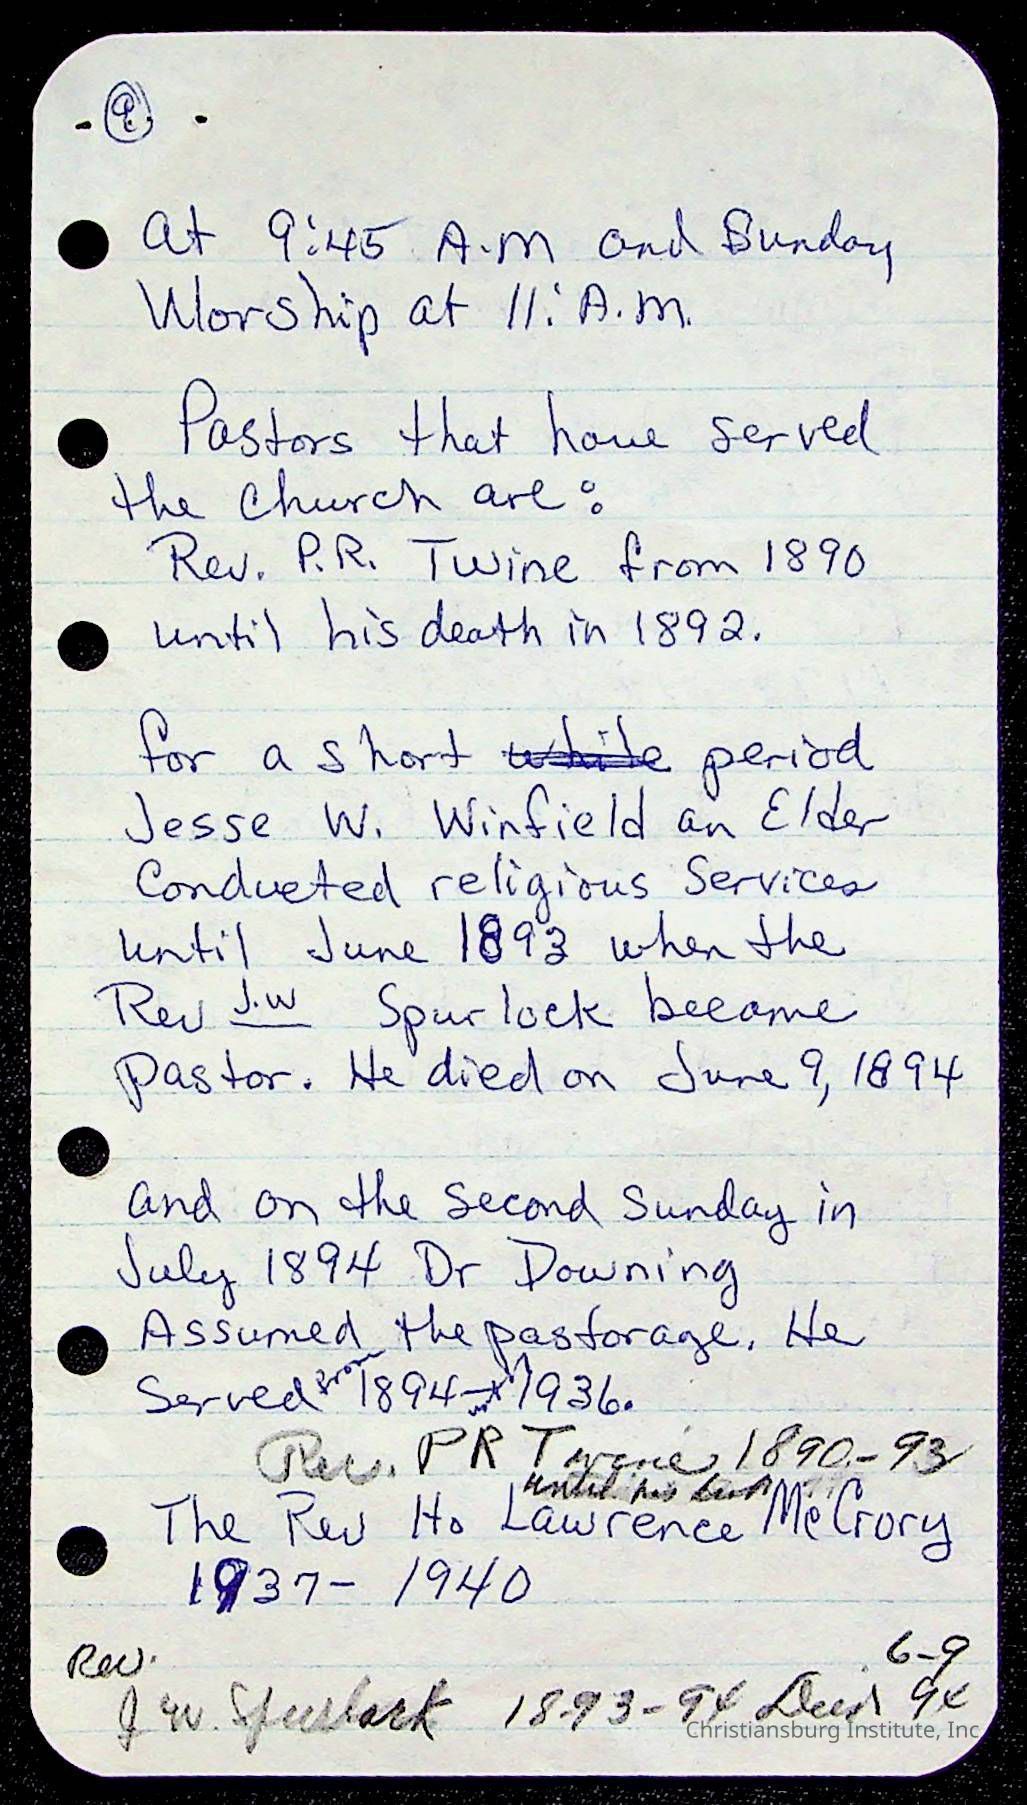 - 9. -
At 9:45 A.M and Sunday
Worship at 11: A.M.
Pastors that have served
the Church are:
Rev. P.R. Twine from 1890
until his death in 1892.
for a short while period
Jesse W. Winfield an Elder
Conducted religious Services
until June 1893 when the
Rev J.W Spurlock became
pastor. He died on June 9, 1894
and on the Second Sunday in
July 1894 Dr Downing
Assumed the pastorage. He
Served from 1894 - 1936.
Rev. PR Twine 1890-93
until his
The Rev H. Lawrence McCrory
1937- 1940
Rev. 6-9
J W. Spurlock 1893-94 Died 94
Christiansburg Institute, Inc